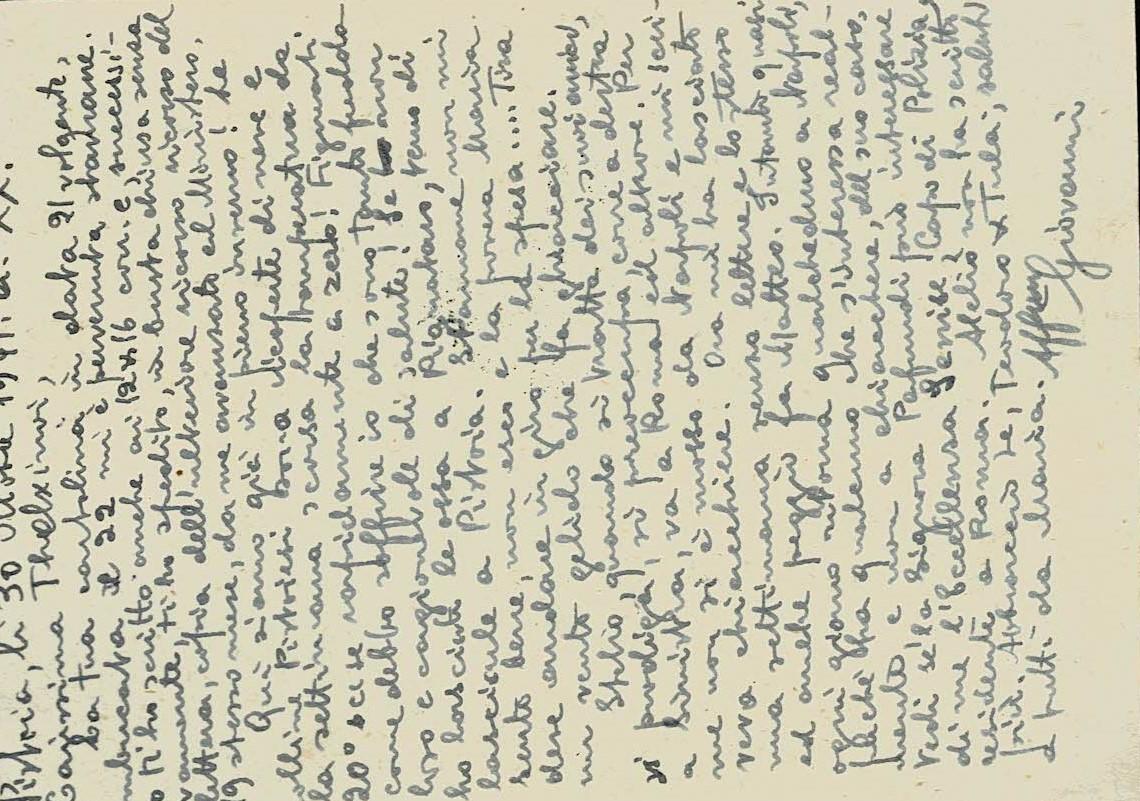 Pistoia, li 30 Ottobre 1941. a. XX.
Carissima Thelximoi,
La tua cartolina in data 21 volgente,
imbucata il 22 mi è pervenuta stamane.
ti ho scritto anche ai con e successi-
vamente, ti ho spedito, in busta chiusa senza
lettera, copia dell'ulteriore ricorso
19 stesso mese, da me avanzato al Ministero,
Qui siamo già in pieno inverno! Le
colline Pistoiesi sono coperte di neve e
la settimana scorsa la temperatura da
20° scese rapidamente a zero! Figurati
come debbo soffrire io che sono tanto freddo-
loso e cagionevole di salute! Se non
ho lasciato le ossa a Pignataro, temo di
lasciarle a Pistoia. Stamane non mi
sento bene, non esco e la povera Maria
deve andare in giro per la spesa.... Tira
un vento gelido che fa ghiacciare.
Spanò quando si tratta dei suoi amici,
si prodiga, si preoccupa, corre a destra
a sinistra, va a Roma ed altrove. Per
me non si è mosso da Napoli e mi scri-
veva chiacchiere. Ora mi ha lasciato
una settimana senza lettere e lo stesso
ed anche peggio fa Matteo. Intanto quasi
ogni giorno ritorna qualcheduno a Napoli,
perché ha qualcuno che s'interessa real-
mente e non a chiacchiere, del suo caso,
Vedi se la Signora Pafundi può interessare
di me l'Eccellenza Senise Capo di Polizia,
residente a Roma. Melis non ha scritto
più. Abbracci a te, Teodoro e Tula, saluti
a tutti da Maria. Affmo
Giovanni